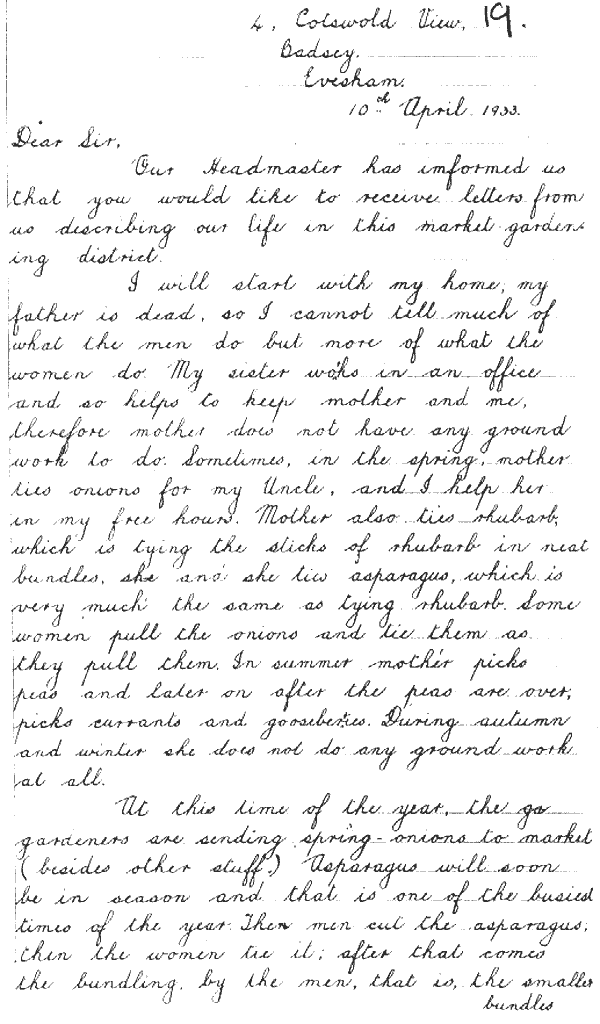 4, Cotswold View, 19.
Badsey.
Evesham.
10th April 1933.
Dear Sir,
Our Headmaster has imformed us
that you would like to receive letters from
us describing our life in this market garden-
ing district.
I will start with my home; my
father is dead, so I cannot tell much of
what the men do but more of what the
women do. My sister works in an office
and so helps to keep mother and me,
therefore mother does not have any ground
work to do. Sometimes, in the spring, mother
ties onions for my Uncle, and I help her
in my free hours. Mother also ties rhubarb,
which is tying the sticks of rhubarb in neat
bundles, she and she ties asparagus, which is
very much the same as tying rhubarb. Some
women pull the onions and tie them as
they pull them. In summer mother picks
peas and later on after the peas are over,
picks currants and gooseberries. During autumn
and winter she does not do any ground work
at all.
At this time of the year, the ga
gardeners are sending spring-onions to market
(besides other stuff.) Asparagus will soon
be in season and that is one of the busiest
times of the year. Then men cut the asparagus;
then the women tie it; after that comes
the bundling, by the men, that is, the smaller
bundles